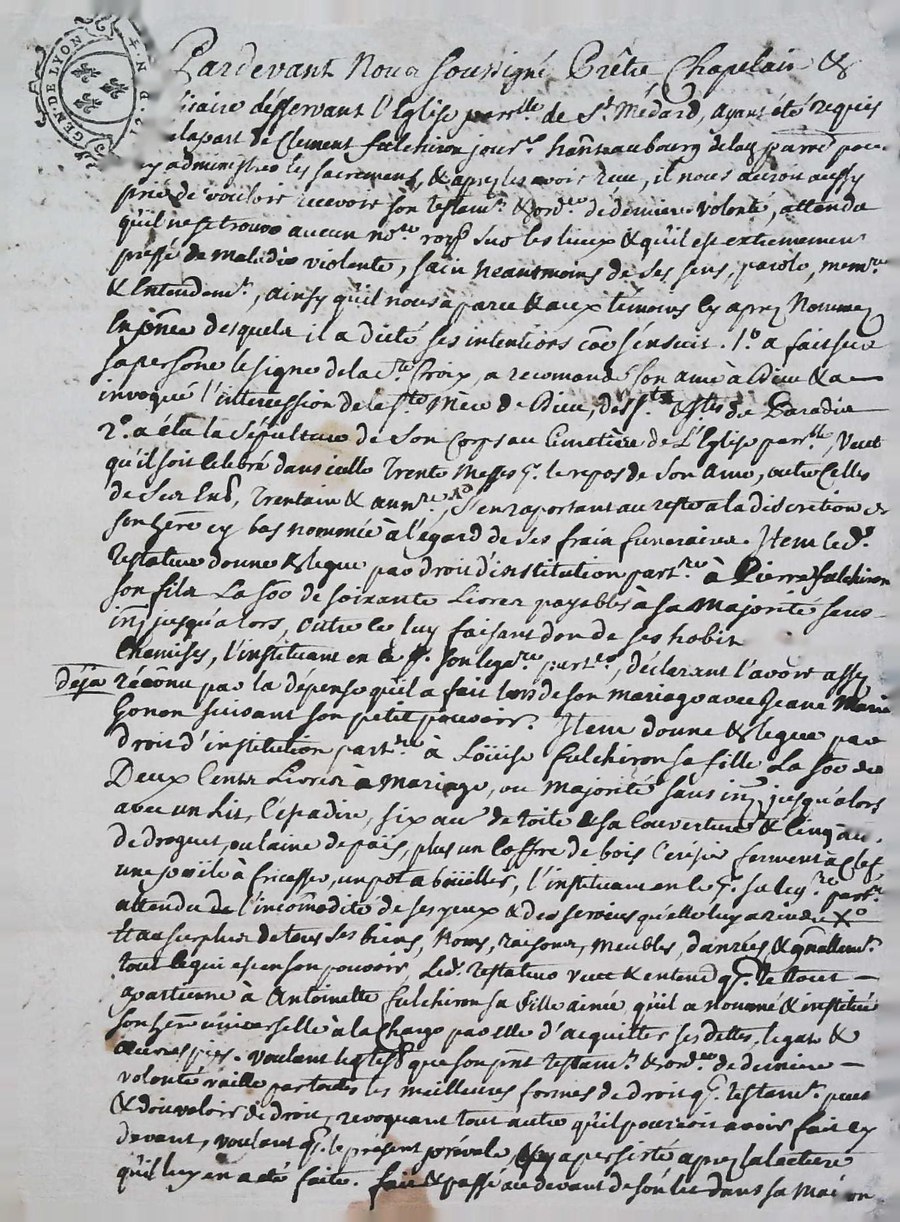 GEN. DE LYON
Pardevant Nous Soussigné Prêtre Chapelain &
caire desservant l'Eglise parr.lle de St. Médard, ayant été requis
la part de Clement fulchiron jour.r parr.e pour
y administrer les sacremens, & apres les avoir reçu, il nous auroit aussy
prié de vouloir recevoir son testam.t & ord.ce de derniere volonté, attendu
qu'il ne se trouve aucun no.re sur les lieux & qu'il est extremement
pressé de maladie violente, sain neantmoins de ses sens, parole, mem.re
& Entendem.t, ainsy qu'il nous a paru & aux temoins cy aprez Nommez
En p̃nce desquels il a dicté ses intentions cõe s'ensuit. 1.o a fait sur
sa persõne le signe de la S.te Croix, a recomandé son ame à Dieu & a
invoqué l'intercession de la S.te Mere de Dieu, des S.ts & S.tes du Paradis
2.o a élu la Sépulture de Son Corps au Cimetière de L'Eglise parr.lle, Veut
qu'il soit celebré dans icelle Trente Messes p.r le repos de Son Ame, outre Celles
de Ses Trentain & s'en raportant au reste a la discretion de
son hẽre cy bas nommée à l'égard de ses frais funeraires. Item led.
testateur donne & legue par droit d'institution part.re à Pierre fulchiron
son fils La Sõe de Soixante Livres payables à sa Majorité sans
int. jusqu'alors, outre ce luy faisant don de ses habits
Chemises, l'instituant en ce son lega.re part.re, déclarant l'avoir assez
déja reconnu par la dépense qu'il a fait lors de son mariage avec Jeane Marie
Gonon suivant son petit pouvoir. Item donne & legue par
droit d'institution part.re à Loüise fulchiron sa fille La Sõe de
Deux Cents Livres à Mariage, ou Majorité sans int. jusqu'alors
avec un Lit, six au de toile & sa Couverture & Cinq au.
de droguet, ou laine de païs, plus un Coffre de bois Cerisier fermant à Clef
une poële à fricasser, un pot a l'instituant en ce sa leg.re part.re
attendu de l'incõmodité de ses yeux & des services qu'elle luy a rendu
Et au surplus de tous Ses biens, Noms, raisons, Meubles, danrées & gñallem.t
tout ce qui est en son pouvoir, Led. testateur veut & entend q. le tout
apartienne à Antoinette fulchiron sa fille ainée qu'il a nommé & institué
son hẽre universelle à la Charge par elle d'acquitter ses dettes, legats &
œuvres pies. Voulant que son p̃nt testam.t & ord.ce de derniere
volonté vaille par toutes les meilleures formes de droit q. testam.t peut
& doit valoir de droit, revoquant tout autre qu'il pourroit avoir fait cy
devant, voulant q. le présent prévale & y a persisté aprez la lecture
qu'il luy en a été faite. fait & passé au devant de son lit dans sa Maison